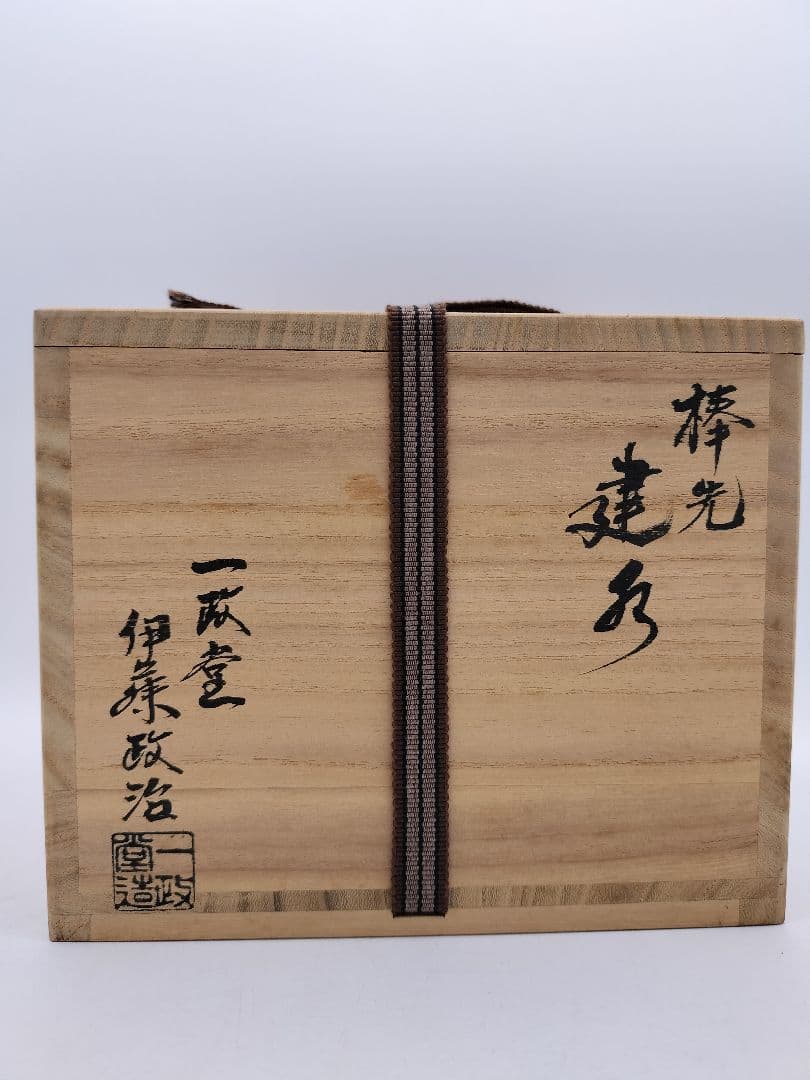 棒先
建水
一政堂
伊藤政治
一政
堂造